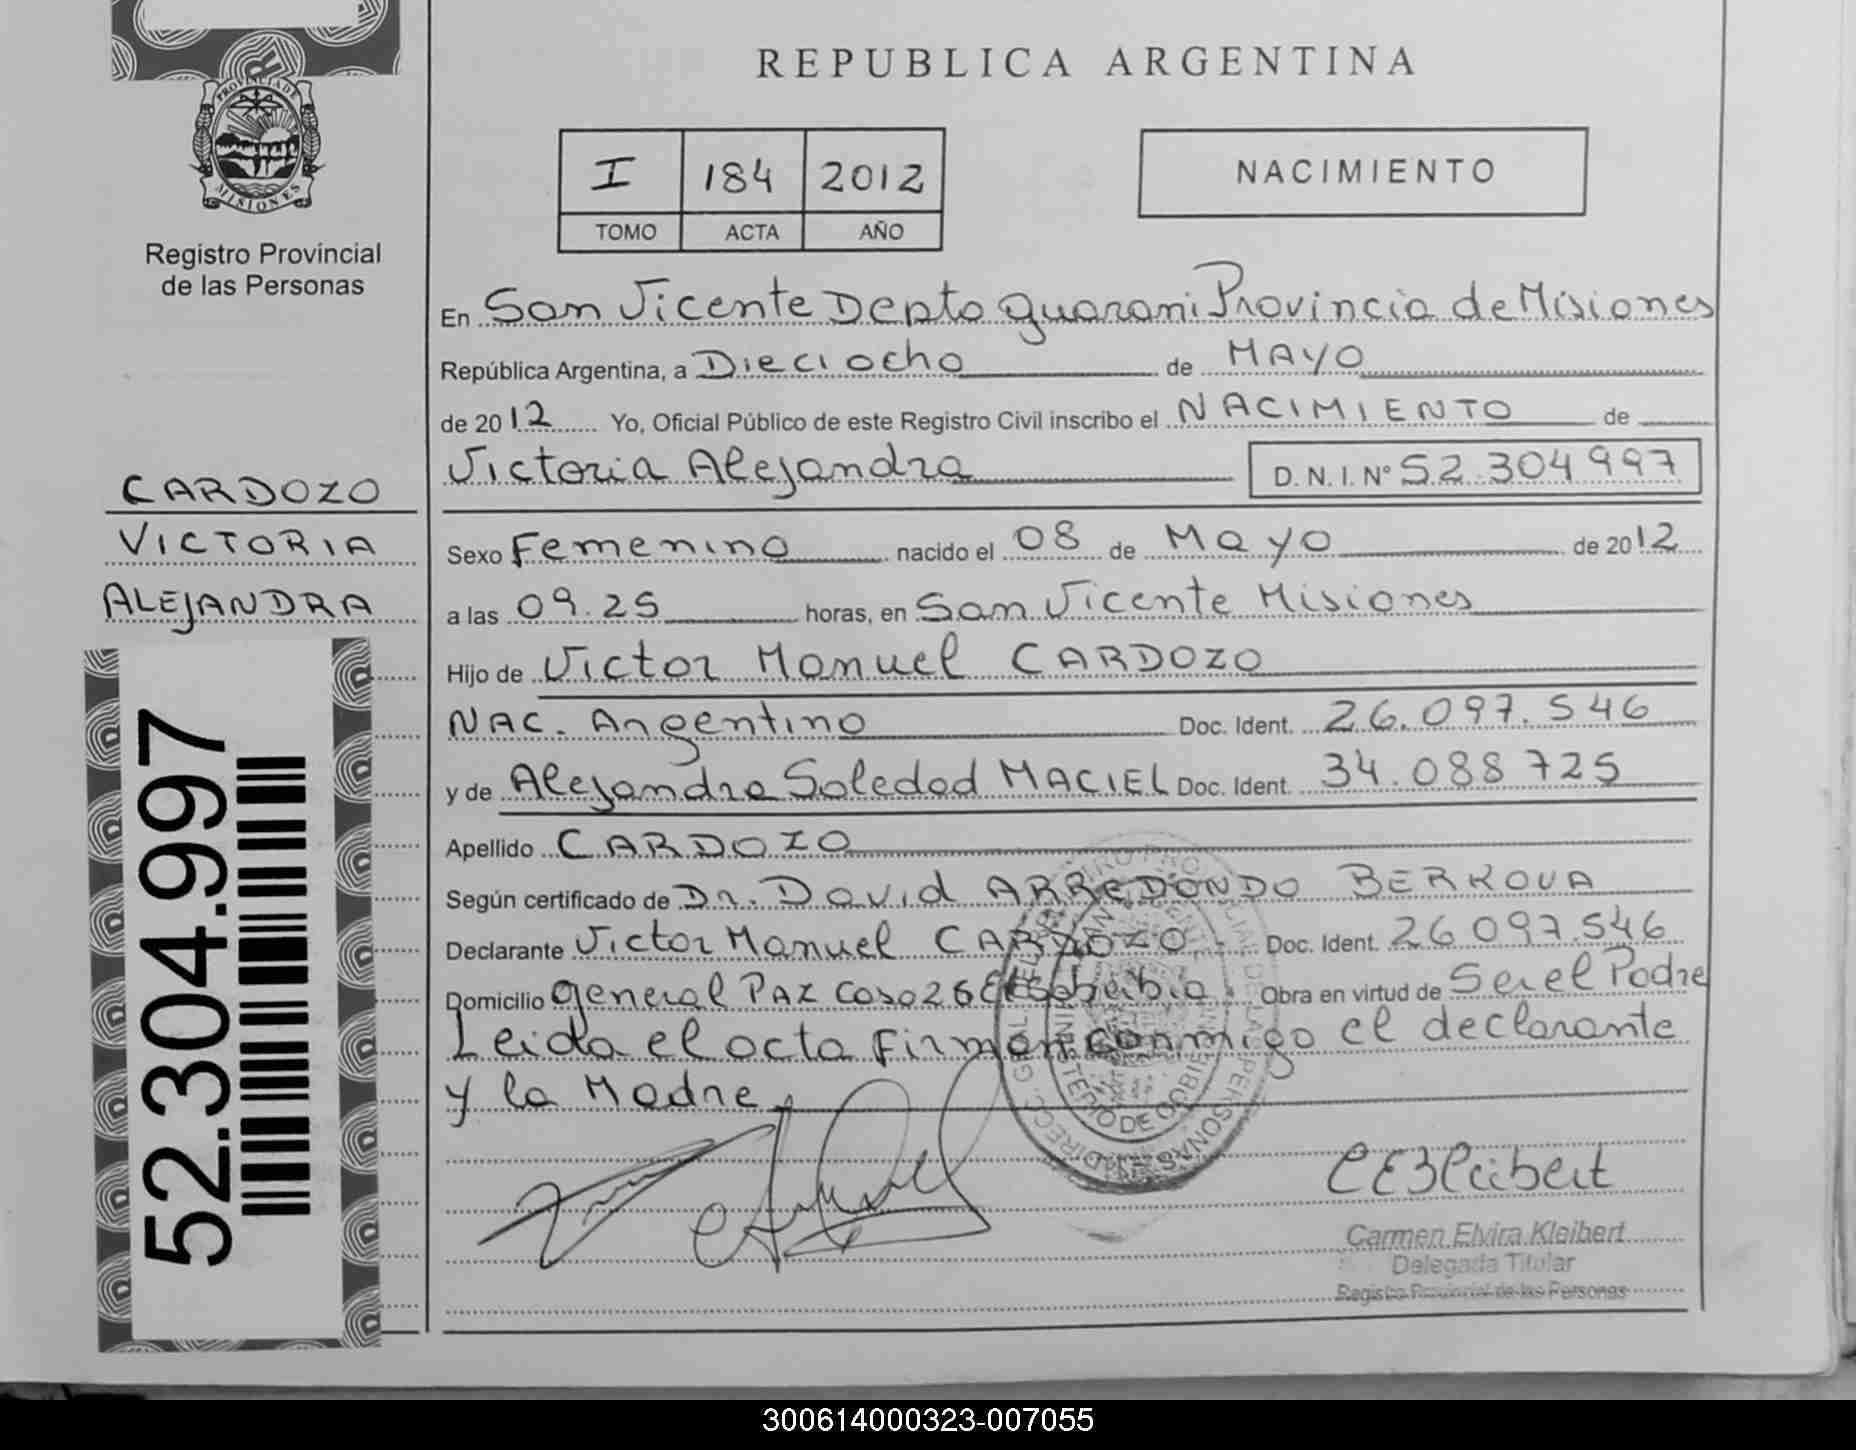 PROVINCIA DE
MISIONES
Registro Provincial
de las Personas
REPUBLICA ARGENTINA
I 184 2012
TOMO ACTA AÑO
NACIMIENTO
En San Vicente Depto guarani Provincia de Misiones
República Argentina, a Dieciocho de MAYO
de 2012 Yo, Oficial Público de este Registro Civil inscribo el NACIMIENTO de
Victoria Alejandra D.N.I. Nº 52.304997
CARDOZO
VICTORIA
ALEJANDRA
52.304.997
Sexo Femenino nacido el 08 de Mayo de 2012
a las 09.25 horas, en San Vicente Misiones
Hijo de Victor Manuel CARDOZO
NAC. Argentino Doc. Ident. 26.097.546
y de Alejandra Soledad MACIEL Doc. Ident. 34.088725
Apellido CARDOZO
Según certificado de Dr. David ARREDONDO BERKOVA
Declarante Victor Manuel CARDOZO - Doc. Ident. 26097.546
Domicilio general PAZ Casa 26 Obra en virtud de Ser el Padre
Leida el acta firman conmigo el declarante
y la Madre
Carmen Elvira Kleibert
Delegada Titular
Registro Provincial de las Personas
300614000323-007055